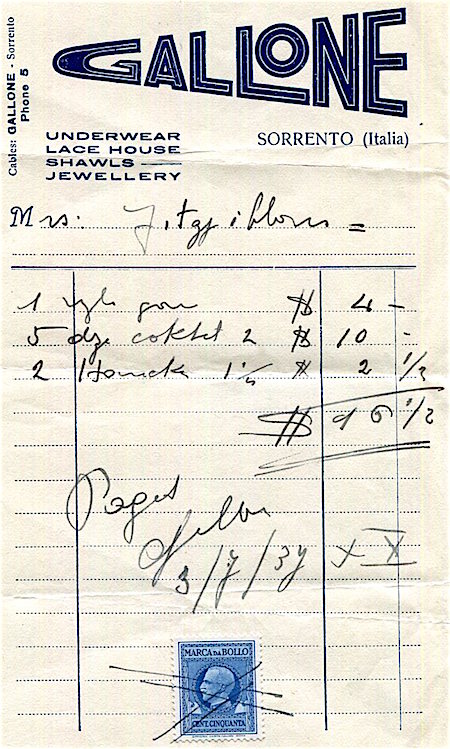 Cables: GALLONE - Sorrento
Phone 5
GALLONE
UNDERWEAR
LACE HOUSE
SHAWLS
JEWELLERY
SORRENTO (Italia)
Mrs. Fitzgibbons =
1 $ 4 -
5 dz coktel 2 $ 10 -
2 $ 2 1/2
$ 16 1/2
Pagato
3/7/37 XV
MARCA DA BOLLO
CENT. CINQUANTA